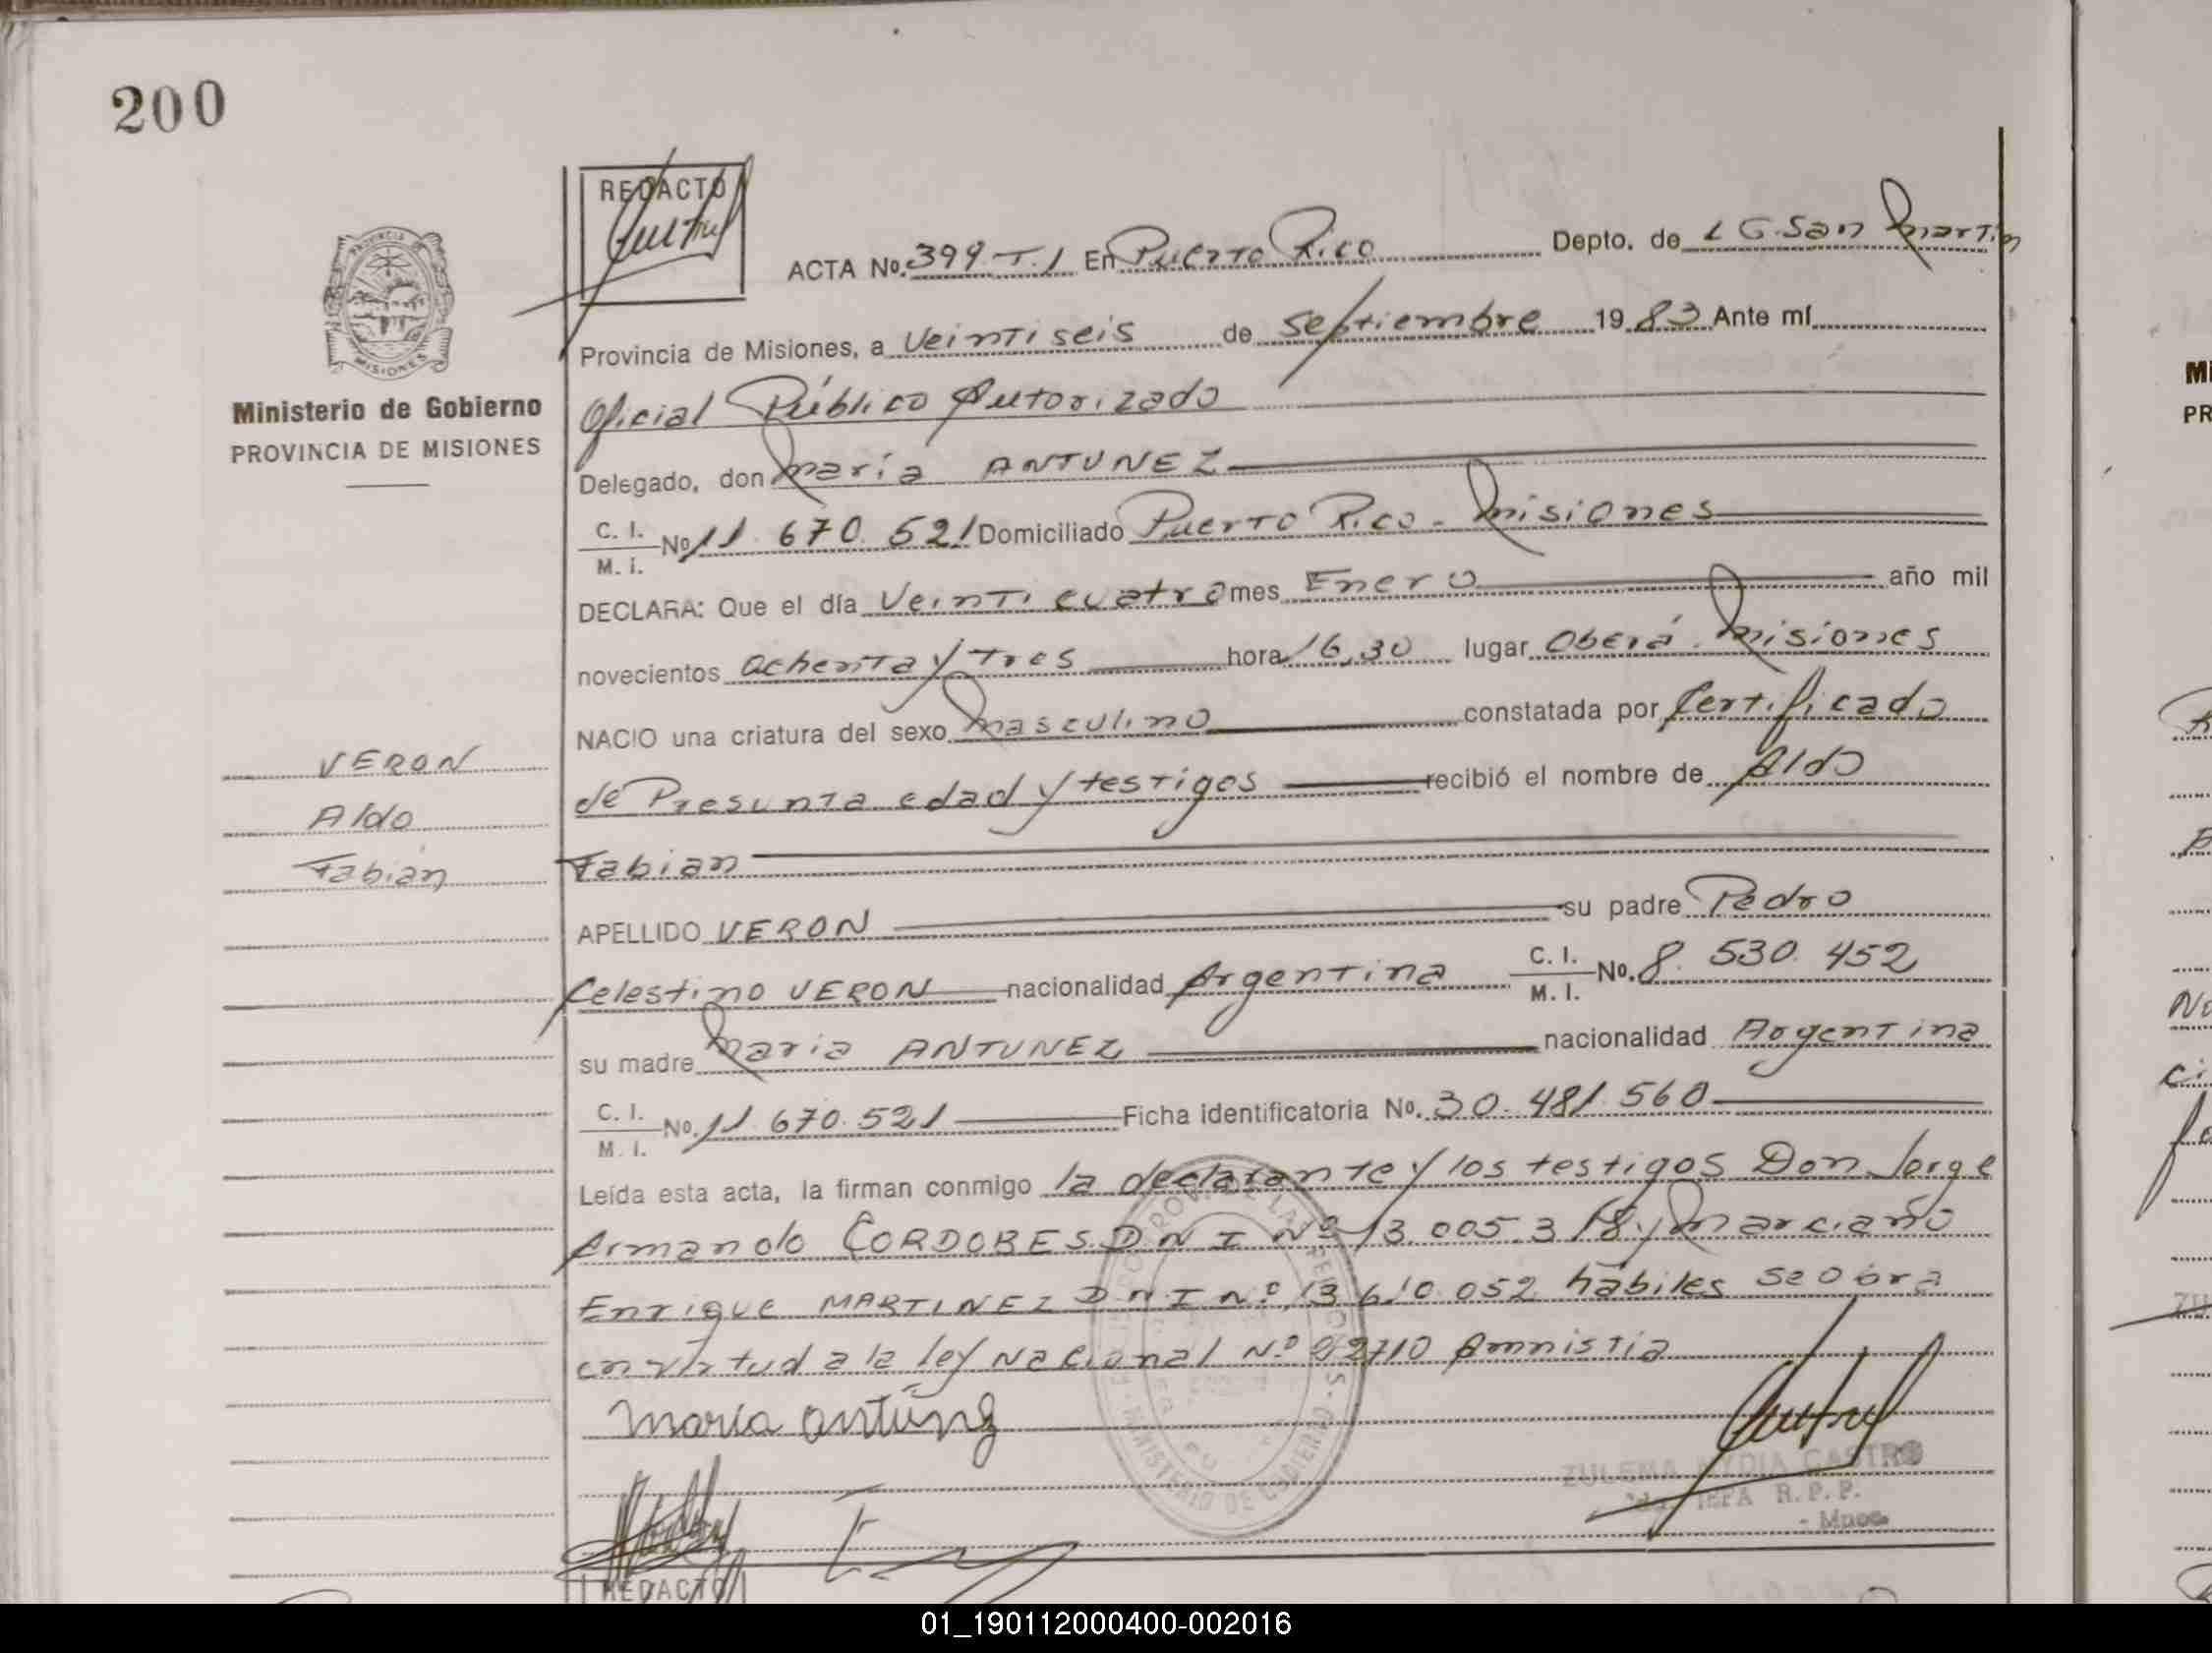 200
REDACTO
ACTA No. 399 T.1 En Puerto Rico Depto. de L G. San Martin
Provincia de Misiones, a Veinti seis de Septiembre 19 83 Ante mí
Ministerio de Gobierno
PROVINCIA DE MISIONES
Oficial Público Autorizado
Delegado, don María ANTUNEZ
C. I. M. I. No 11. 670. 521 Domiciliado Puerto Rico - Misiones
DECLARA: Que el día Veinti cuatro mes Enero año mil
novecientos ochenta y tres hora 16,30 lugar Oberá - Misiones
NACIO una criatura del sexo Masculino constatada por Certificado
de Presunta edad y testigos recibió el nombre de Aldo
Fabian
VERON
Aldo
Fabián
APELLIDO VERON su padre Pedro
Celestino VERON nacionalidad Argentina C. I. M. I. No. 8. 530. 452
su madre Maria ANTUNEZ nacionalidad Argentina
C. I. M. I. No. 11. 670. 521 Ficha identificatoria No. 30. 481. 560
Leída esta acta, la firman conmigo la declarante y los testigos Don Jorge
Armando CORDOBES D N I Nº 13. 005. 318 y Marciano
Enrique MARTINEZ D N I Nº 13 610 052 hábiles se obra
en virtud a la ley Nacional Nº 22710 Amnistia
María Antúnez
ZULEMA NYDIA CASTRO
JEFA R. P. P.
- Mnes.
MINISTERIO DE GOBIERNO
REDACTO
01_190112000400-002016